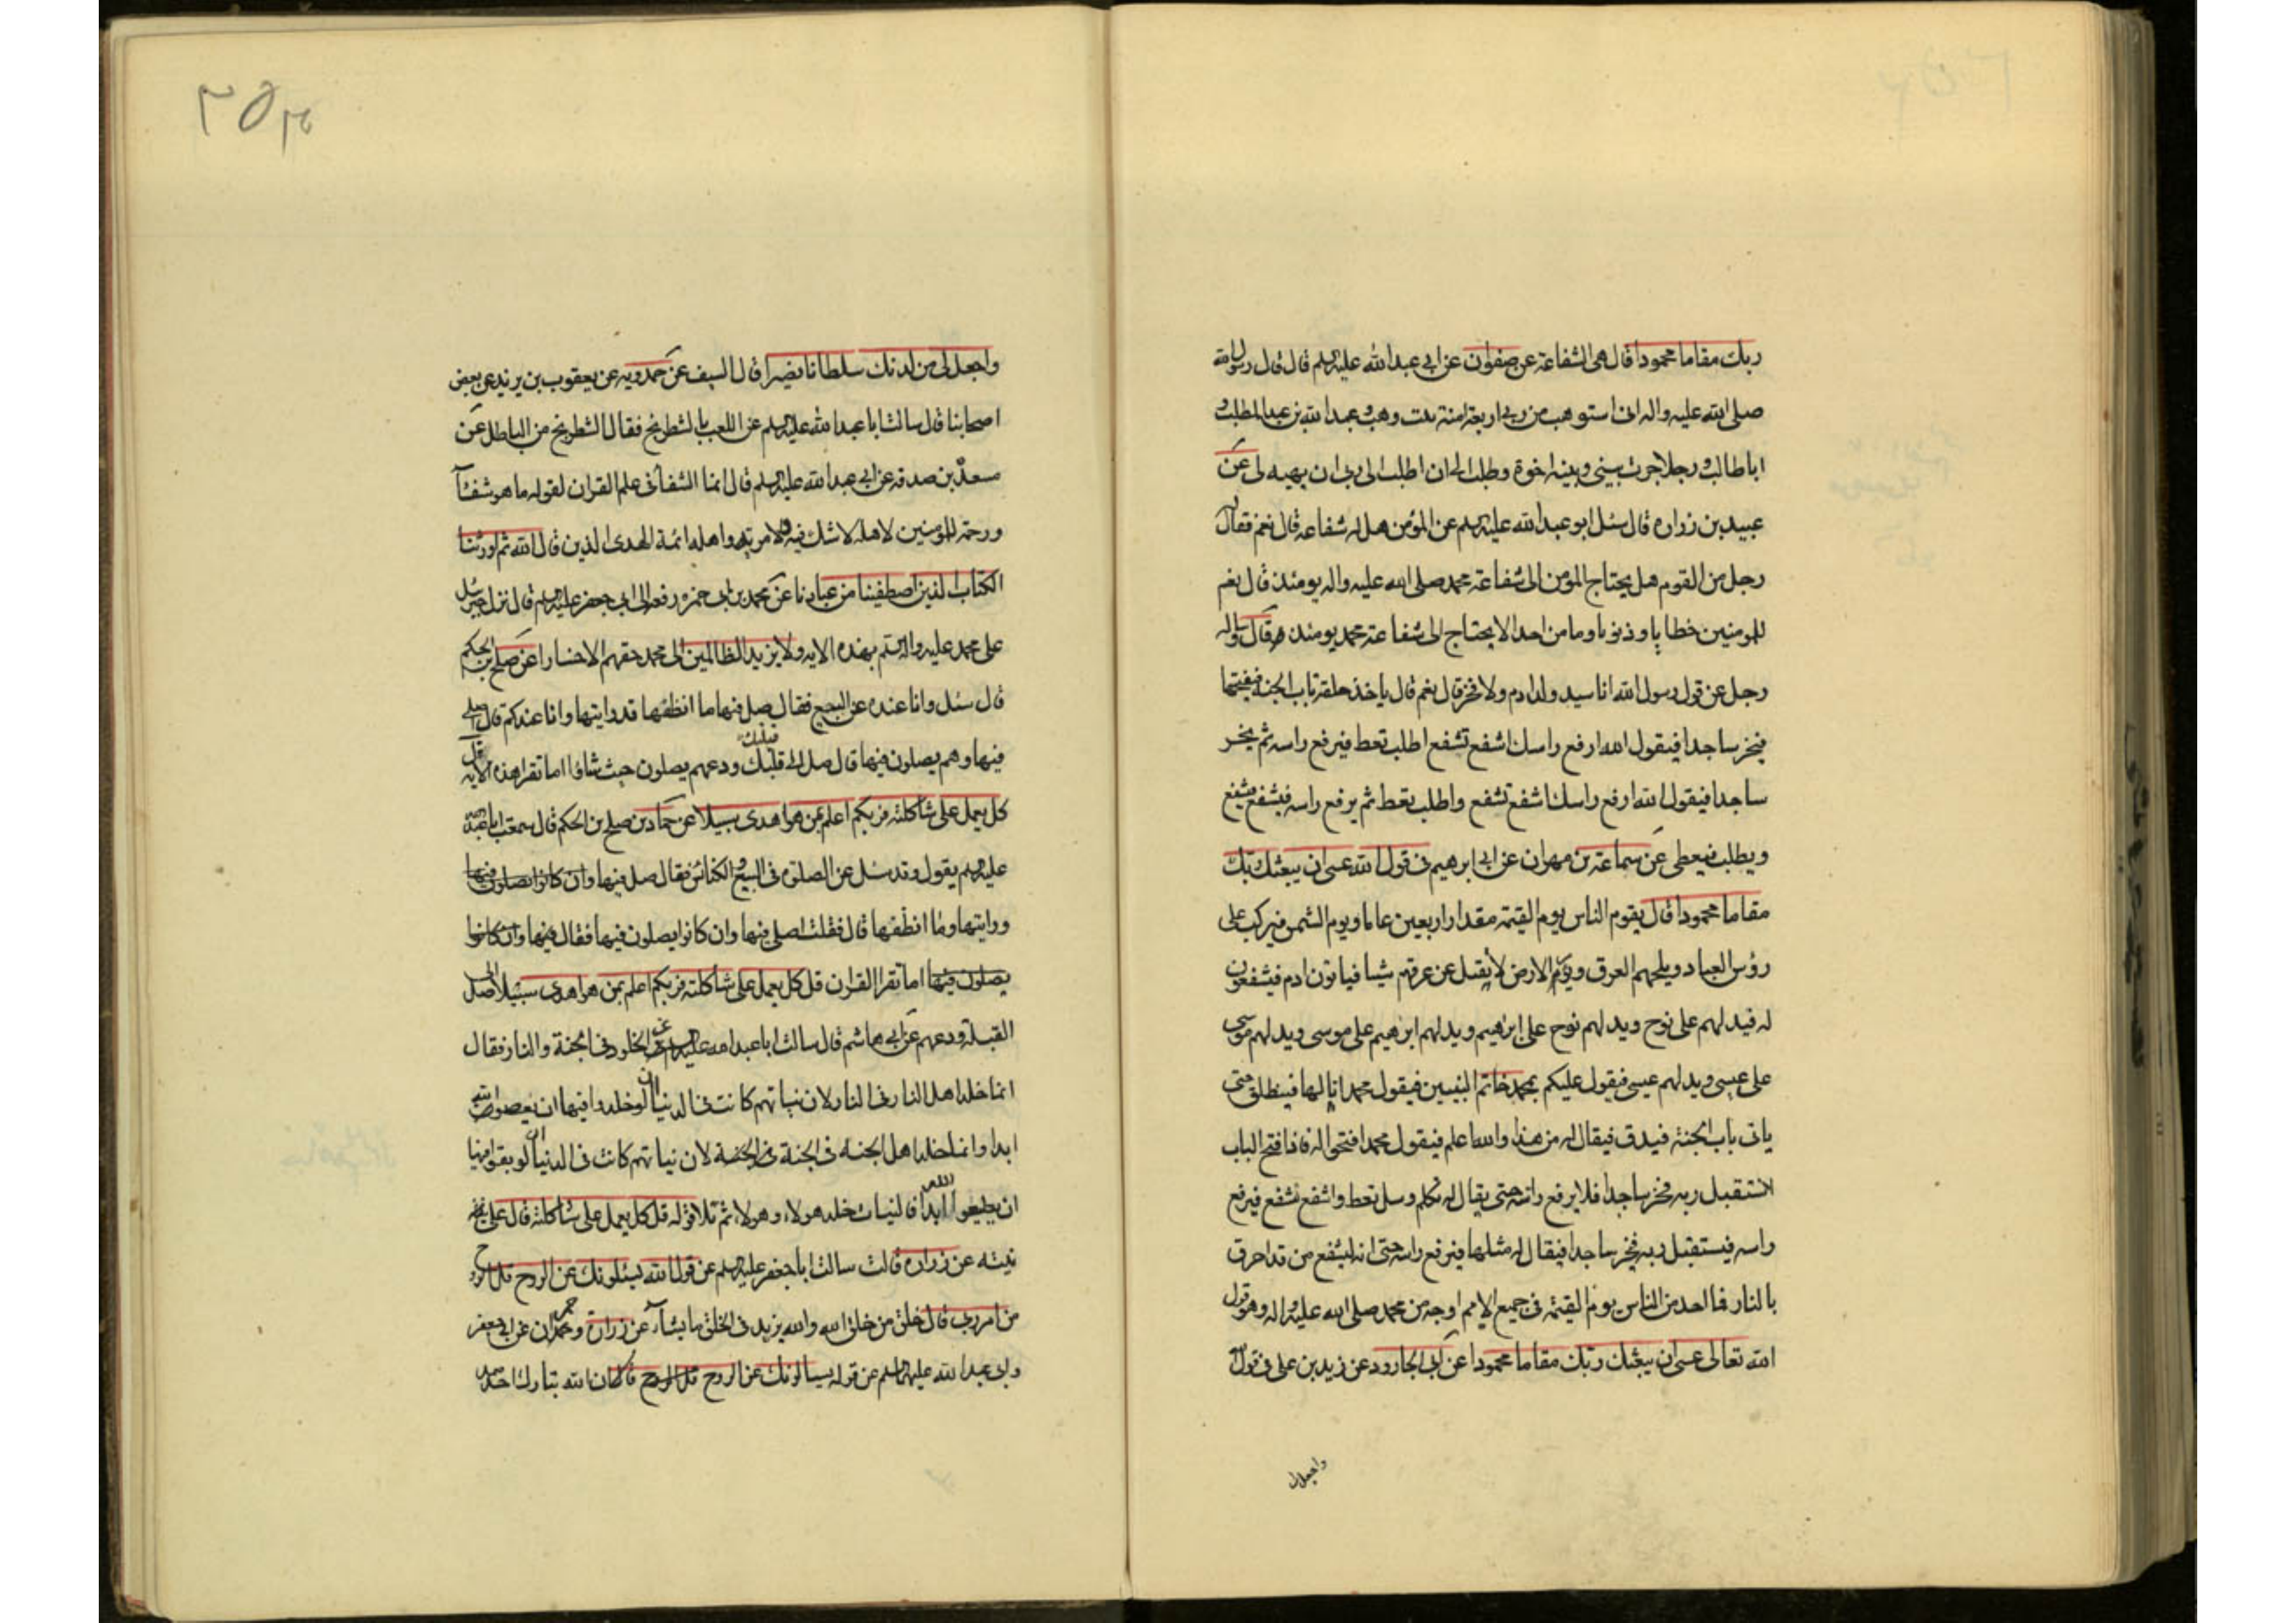 ربك مقاما محمودا قال هى الشفاعة عن صفوان عن ابى عبد الله عليه السلم قال قال رسول الله
صلى الله عليه واله انى استوهب من ربى اربعة امنة بنت وهب وعبد الله بن عبد المطلب و
ابا طالب ورجلا جرت بينى وبينه اخوة وطلب الى ان اطلب الى ربى ان يهبه لى عن
عبيد بن زراره قال سئل ابو عبد الله عليه السلم عن المؤمن هل له شفاعة قال نعم فقال له
رجل من القوم هل يحتاج المؤمن الى شفاعة محمد صلى الله عليه واله يومئذ قال نعم
للمومنين خطايا وذنوبا وما من احد الا يحتاج الى شفاعة محمد يومئذ قال وساله
رجل عن قول رسول الله انا سيد ولد ادم ولا فخر قال نعم قال ياخذ حلقة باب الجنة فيفتحها
فيخر ساجدا فيقول الله ارفع راسك اشفع تشفع اطلب تعط فيرفع راسه ثم يخر
ساجدا فيقول الله ارفع راسك اشفع تشفع واطلب تعط ثم يرفع راسه فيشفع فيشفع
ويطلب فيعطى عن سماعة بن مهران عن ابى ابرهيم فى قول الله عسى ان يبعثك ربك
مقاما محمودا قال يقوم الناس يوم القيمة مقدار اربعين عاما ويوم الشمس فيركب على
رؤس العباد ويلجمهم العرق ويؤمر الارض لا يقبل عن عرقهم شيا فياتون ادم فيشفعون
له فيدلهم على نوح ويدلهم نوح على ابرهيم ويدلهم ابرهيم على موسى ويدلهم موسى
على عيسى ويدلهم عيسى فيقول عليكم بمحمد خاتم النبيين فيقول محمد انا لها فينطلق حتى
ياتى باب الجنة فيدق فيقال له من هذا والله اعلم فيقول محمد افتحوا له فاذا فتح الباب
استقبل ربه فخر ساجدا فلا يرفع راسه حتى يقال له تكلم وسل تعط واشفع تشفع فيرفع
راسه فيستقبل ربه فيخر ساجدا فيقال له مثلها فيرفع راسه حتى انه ليشفع من قد احرق
بالنار فما احد من الناس يوم القيمة فى جميع الامم اوجه من محمد صلى الله عليه واله وهو قول
الله تعالى عسى ان يبعثك ربك مقاما محمودا عن ابى الجارود عن زيد بن على فى قول الله
واجعل لى
٢٥٣
واجعل لى من لدنك سلطانا نصيرا قال السيف عن حمدويه عن يعقوب بن يزيد عن بعض
اصحابنا قال سالت ابا عبد الله عليه السلم عن اللعب بالشطرنج فقال الشطرنج من الباطل عن
مسعدة بن صدقه عن ابى عبد الله عليه السلم قال انما الشفآ فى علم القران لقوله ما هو شفآ
ورحمة للمومنين لاهله لا شك فيه ولا مرية واهله ائمة الهدى الذين قال الله ثم اورثنا
الكتاب الذين اصطفينا من عبادنا عن محمد بن ابى حمزه رفعه الى ابى جعفر عليه السلم قال نزل جبرئيل
على محمد عليه واله السلم بهذه الايه ولا يزيد الظالمين آل محمد حقهم الا خسارا عن صلح بن الحكم
قال سئل وانا عنده عن البيع فقال صل فيها ما انظفها قد رايتها وانا عندكم قال اصلى
فيها وهم يصلون فيها قال صل الى قبلتك ودعهم يصلون حيث شاؤا اما تقرا هذه الايه قل
كل يعمل على شاكلته فربكم اعلم بمن هو اهدى سبيلا عن حماد بن صلح بن الحكم قال سمعت ابا عبد الله
عليه السلم يقول وقد سئل عن الصلوة فى البيع والكنائس فقال صل فيها وان كانوا يصلون فيها
ورايتها وما انظفها قال فقلت اصلى فيها وان كانوا يصلون فيها فقال فيها وان كانوا
يصلون فيها اما تقرا القران قل كل يعمل على شاكلته فربكم اعلم بمن هو اهدى سبيلا صل الى
القبلة ودعهم عن ابى هاشم قال سالت ابا عبد الله عليه السلم عن الخلود فى الجنة والنار فقال
انما خلد اهل النار فى النار لان نياتهم كانت فى الدنيا ان لو خلدوا فيها ان يعصوا الله
ابدا وانما خلد اهل الجنه فى الجنة فى الجنة لان نياتهم كانت فى الدنيا ان لو بقوا فيها
ان يطيعوا الله ابدا فالنيات خلد هولاء وهولاء ثم تلا قوله قل كل يعمل على شاكلته قال على
نيته عن زراره قالت سالت ابا جعفر عليه السلم عن قول الله يسئلونك عن الروح قل الروح
من امر ربى قال خلق من خلق الله والله يزيد فى الخلق ما يشآء عن زراره وحمران عن ابى جعفر
وابى عبد الله عليهما السلم عن قوله يسالونك عن الروح قل الروح قالا ان الله تبارك احد صمد